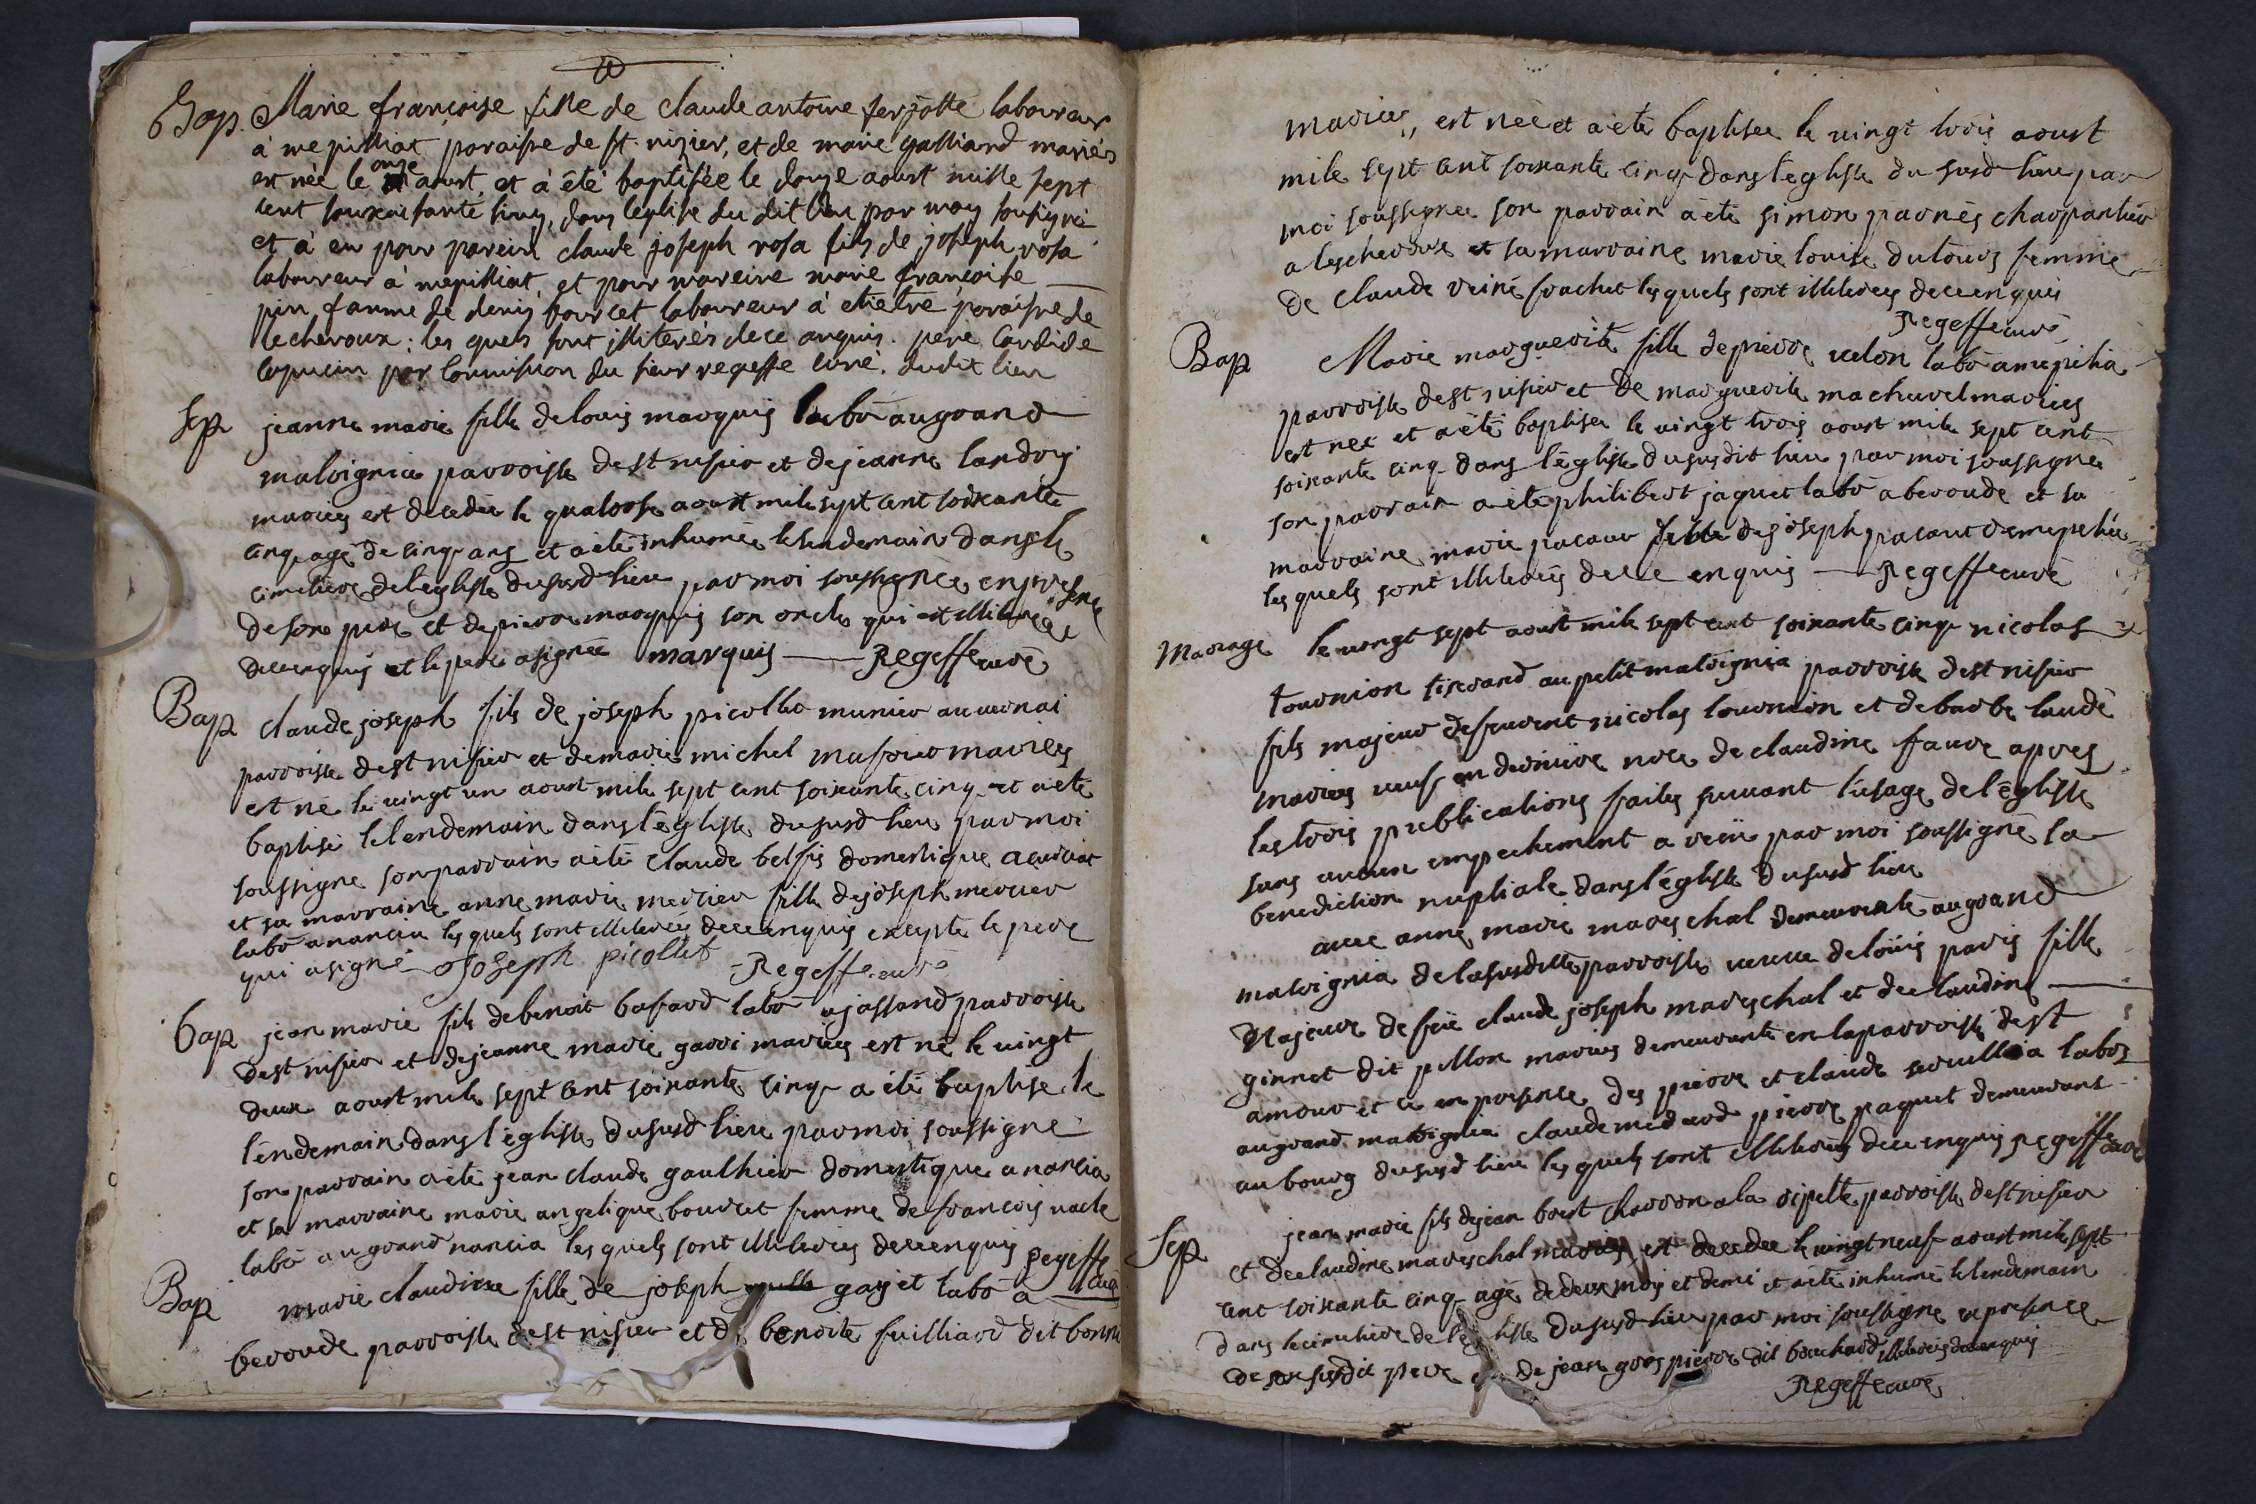 Bap. Marie françoise fille de claude antoine ferjotte laboureur
à mepilliat paraisse de st. nizier, et de marie galliand mariés
est née le onze aoust, et à été baptisée le douze aoust mille sept
cent souxoisante sinq, dans leglise du dit lieu par moy sousigné
et à eu pour parein claude joseph rosa fils de joseph rosa
laboureur à mepilliat, et pour mareine marie françoise
pin famme de denis bourcet laboureur à paraisse de
lecheroux : les quels sont illiterés de ce anquis. pere Candide
capucin par Commission du sieur regeffe curé. dudit lieu
Sep jeanne marie fille de louis marquis labo au grand
malvignia parroisse de st nisier et de jeanne landry
mariés est decedée le quatorse aoust mile sept cent soixante
cinq agé de cinq ans et a été inhumée le lendemain dans le
cimetiere de leglisse du susd lieu par moi soussignee en presence
de son pere et de pierre marquis son oncle qui est illiteree
de ce enquis et le pere a signée marquis — Regeffe curé
Bap claude joseph fils de joseph picollet munier au vernai
parroisse de st nisier et de marie michel mariés
est né le vingt un aoust mile sept cent soixante cinq et a eté
baptisé le lendemain dans l'eglisse du susd lieu par moi
soussigne son parrain a été claude domestique a
et sa marraine anne marie mercier fille de joseph mercier
labo a nancia les quels sont illiterés de ce enquis excepte le pere
qui a signé Joseph picollet Regeffe curé
bap jean marie fils de benoit basard labo a jassand parroisse
de st nisier et de jeanne marie garri mariés est né le vingt
deux aoust mile sept cent soixante cinq a été baptise le
lendemain dans l'eglisse du susd lieu par moi soussigné
son parrain a été jean claude gaulhier domestique a nancia
et sa marraine marie angelique bourcet femme de francois vacle
labo au grand nancia les quels sont illiterés de ce enquis Regeffe curé
Bap marie claudine fille de joseph gayet labo a
beroude parroisse de st nisier et de benoite fuilliard dit bonne
mariés, est née et a été baptisee le vingt trois aoust
mile sept cent soixante cinq dans l'eglisse du susd lieu par
moi soussignee son parrain a été simon parnès charpantier
a lescheroux et sa marraine marie louise dutours femme
de claude les quels sont illiterés de ce enquis
Regeffe curé
Bap Marie marguerite fille de pierre velon labo a mepilia
parroisse de st nisier et de marguerite machurel mariés
est nee et a été baptisee le vingt trois aoust mile sept cent
soixante cinq dans l'eglisse du susdit lieu par moi soussigne
son parrain a été philibert jaquet labo a beroude et sa
marraine marie pacaut fille de joseph pacaut de mepelia
les quels sont illiterés de ce enquis — Regeffe curé
Mariage le vingt sept aoust mile sept cent soixante cinq nicolas
tournion tiserand au petit malvignia parroisse de st nisier
fils majeur de nicolas tournion et de barbe laude
mariés veuf en derniere noce de claudine faure apres
les trois publications faites suivant l'usage de l'eglisse
sans aucun empechement a reçu par moi soussigné la
benediction nuptiale dans l'eglisse du susd lieu
avec anne marie mareschal demeurente au grand
malvignia de la susditte parroisse veuve de loüis paris fille
majeure de feü claude joseph mareschal et de claudine
ginnet dit pillon mariés demeurante en la parroisse de st
amour et ce en presence des pierre et claude labo
au grand malvignia claude medard pierre paquet demeurant
au bourg du susd lieu les quels sont illiterés de ce enquis Regeffe curé
Sep jean marie fils de jean boest charron a la parroisse de st nisier
et de claudine mareschal mariés est decedee le vingt neuf aoust mile sept
cent soixante cinq agé de deux mois et demi et a été inhumé le lendemain
dans le cimetiere de l'eglisse du susd lieu par moi soussigne en presence
de son susdit pere et de jean gros pierre dit bouchard illiterés de ce enquis
Regeffe curé